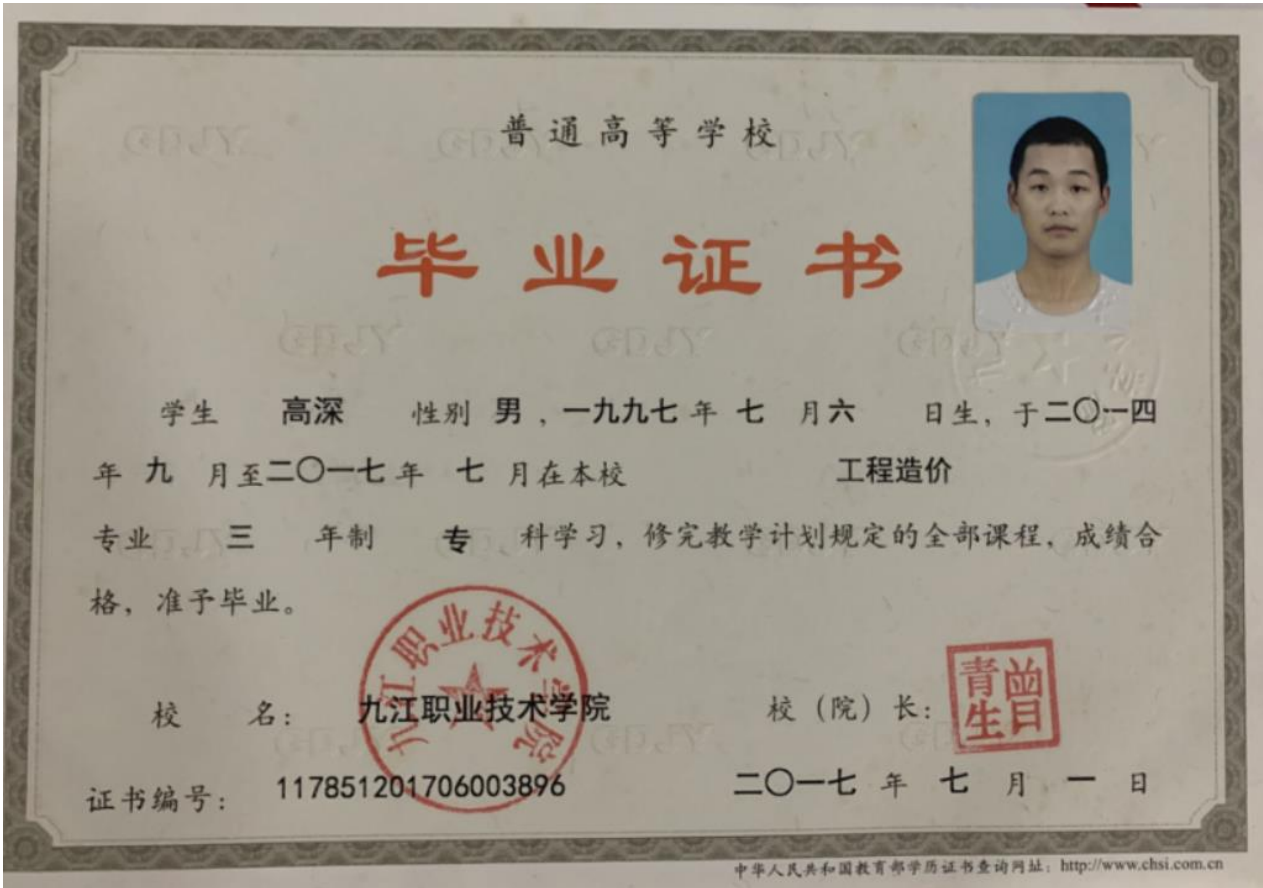 普通高等学校
毕业证书
学生 高深 性别 男，一九九七 年 七 月六 日生，于二〇一四
年 九 月至二〇一七年 七 月在本校 工程造价
专业 三 年制 专 科学习，修完教学计划规定的全部课程，成绩合
格，准予毕业。
九江职业技术学院
曾青生
校 名： 九江职业技术学院 校（院）长：
证书编号： 117851201706003896 二〇一七 年 七 月 一 日
中华人民共和国教育部学历证书查询网址：http://www.chsi.com.cn